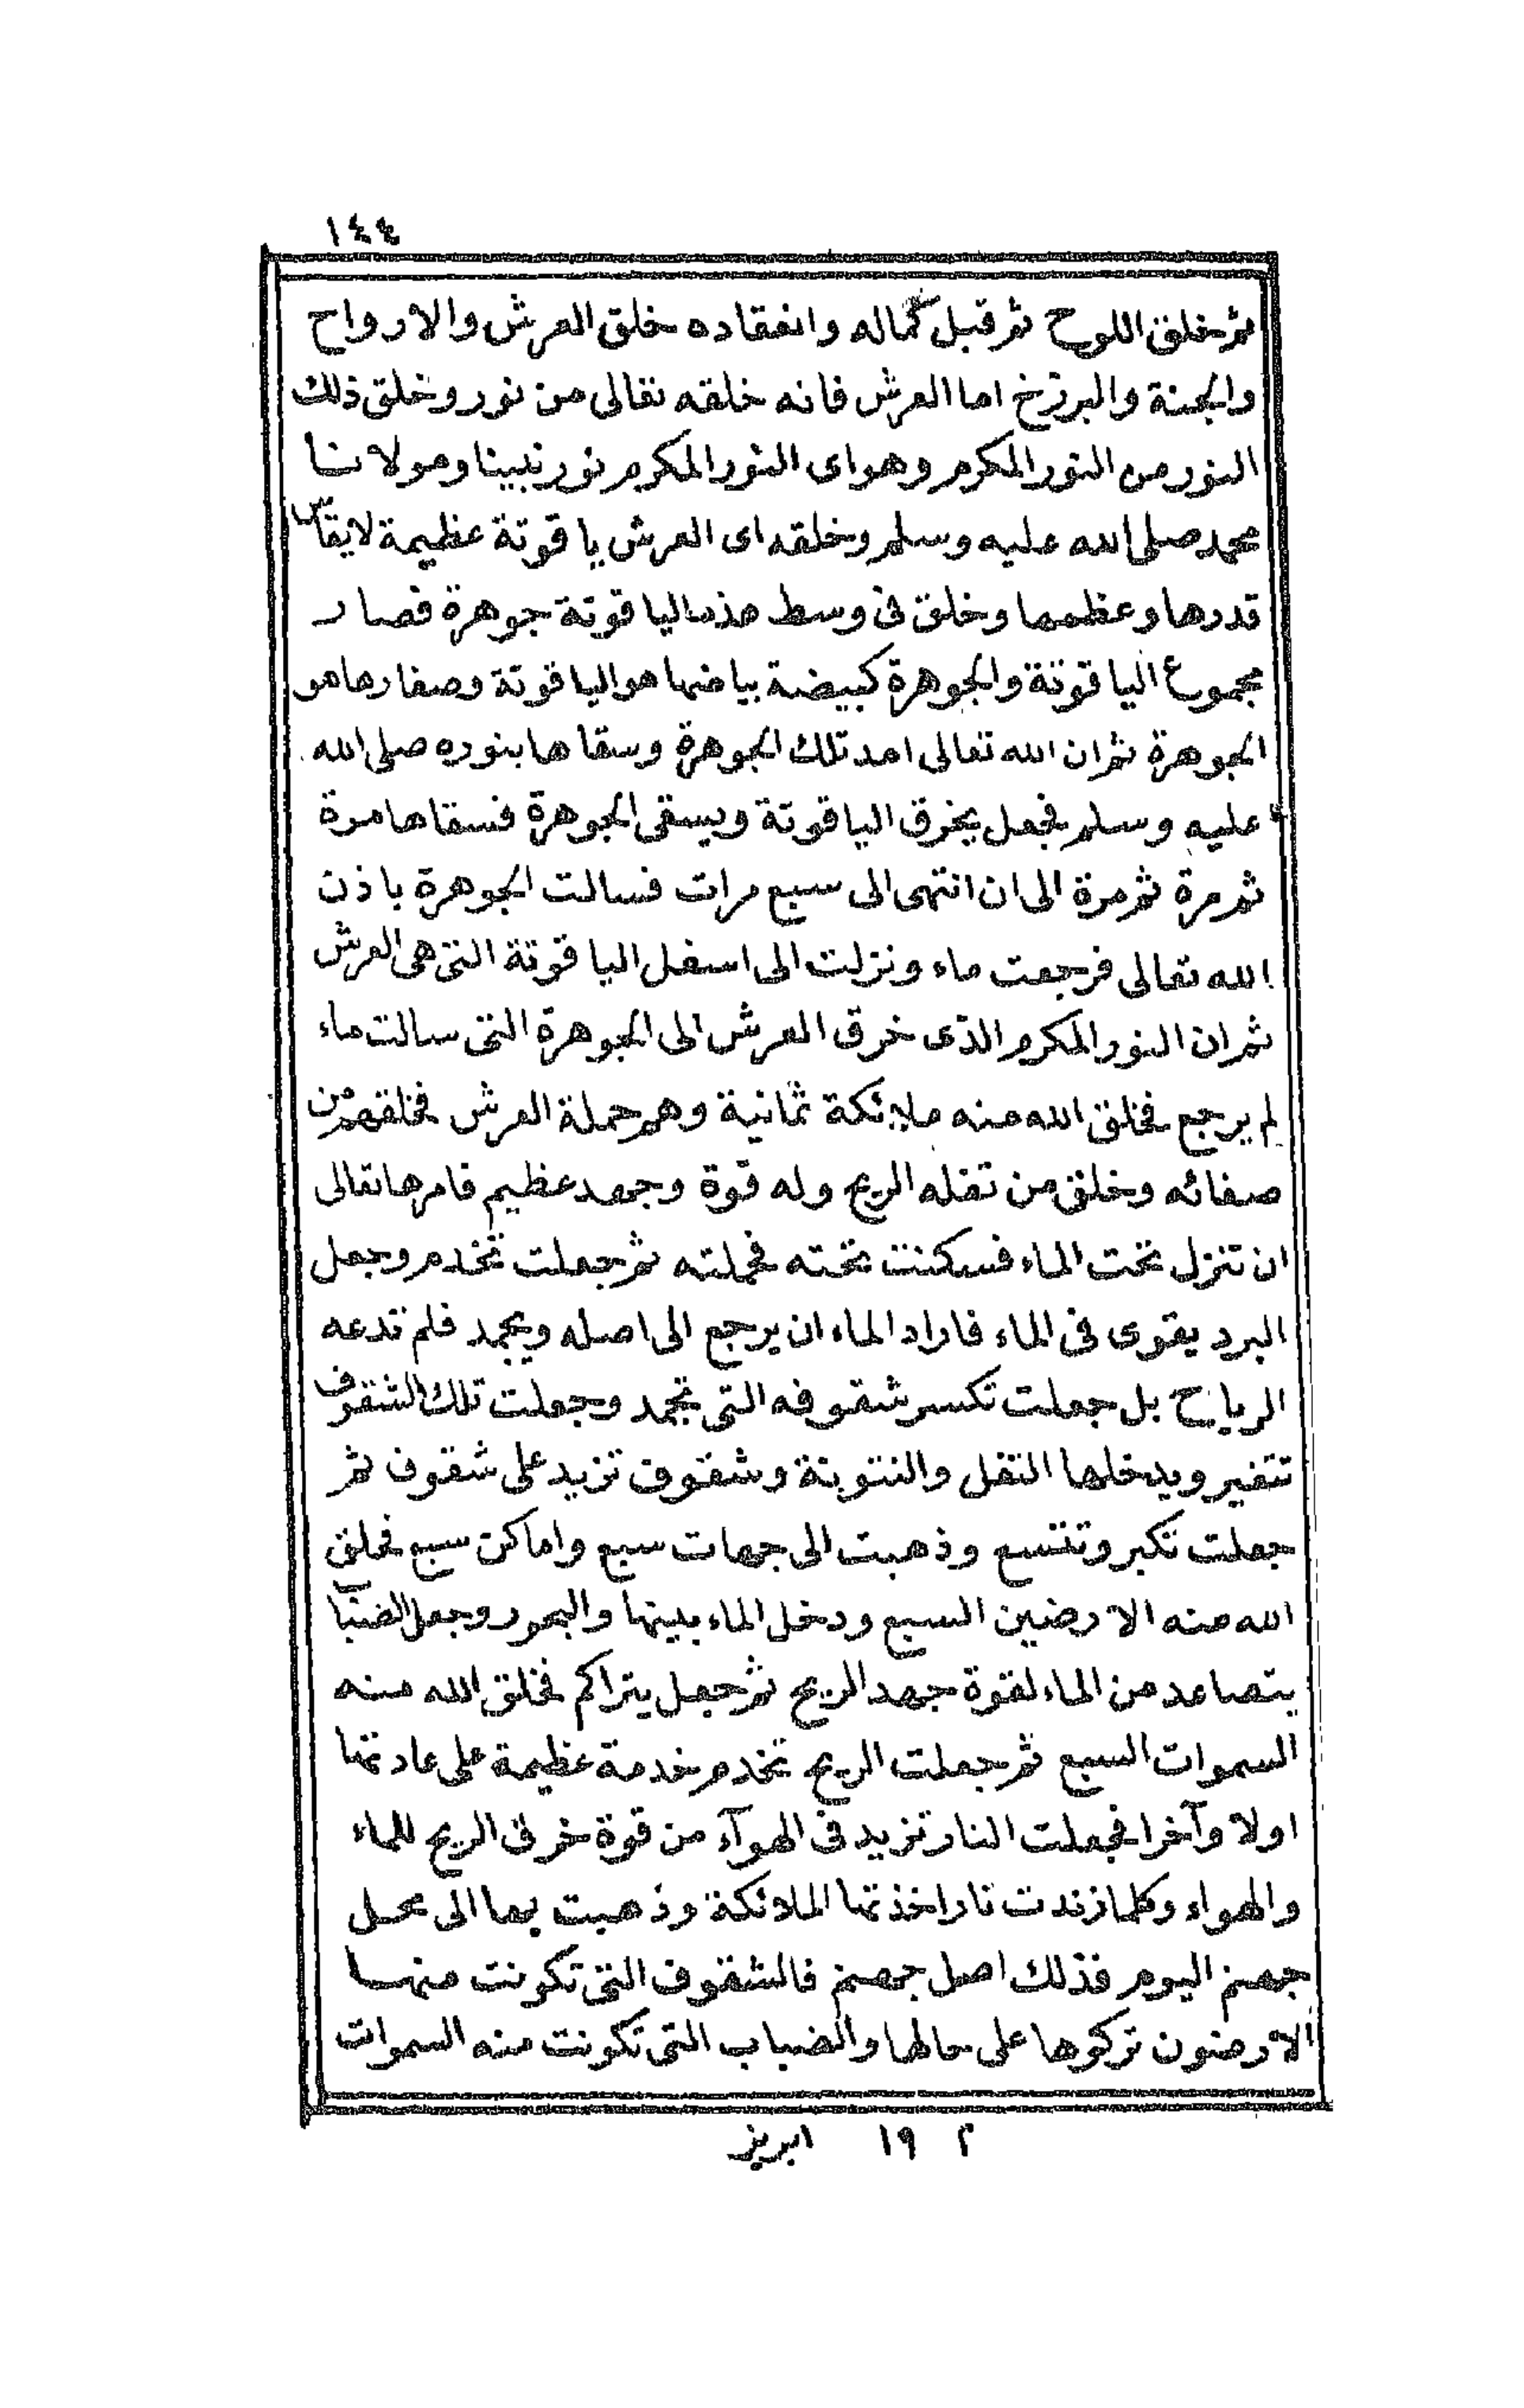 ١٤٤
ثم خلق اللوح ثم قبل كماله وانعقاده خلق العرش والارواح
والجنة والبرزخ اما العرش فانه خلقه تعالى من نور وخلق ذلك
النور من النور المكرم وهو اى النور المكرم نور نبينا ومولانا
محمد صلى الله عليه وسلم وخلقه اى العرش ياقوتة عظيمة لا يقاس
قدرها وعظمها وخلق فى وسط هذه الياقوتة جوهرة فصار
مجموع الياقوتة والجوهرة كبيضة بياضها هو الياقوتة وصفارها هو
الجوهرة ثم ان الله تعالى امد تلك الجوهرة وسقاها بنوره صلى الله
عليه وسلم فجعل يخرق الياقوتة ويسقى الجوهرة فسقاها مرة
ثم مرة ثم مرة الى ان انتهى الى سبع مرات فسالت الجوهرة باذن
الله تعالى فرجعت ماء ونزلت الى اسفل الياقوتة التى هى العرش
ثم ان النور المكرم الذى خرق العرش الى الجوهرة التى سالت ماء
لم يرجع فخلق الله منه ملائكة ثمانية وهم حملة العرش فخلقهم من
صفائه وخلق من ثقله الريح وله قوة وجهد عظيم فامرها تعالى
ان تنزل تحت الماء فسكنت تحته فحملته ثم جعلت تخدم وجعل
البرد يقوى فى الماء فاراد الماء ان يرجع الى اصله ويجمد فلم تدعه
الرياح بل جعلت تكسر شقوفه التى تجمد وجعلت تلك الشقوف
تتغير ويدخلها الثقل والنتونة وشقوف تزيد على شقوف ثم
جعلت تكبر وتتسع وذهبت الى جهات سبع واماكن سبع فخلق
الله منه الارضين السبع ودخل الماء بينها والبحور وجعل الضباب
يتصاعد من الماء لقوة جهد الريح ثم جعل يتراكم فخلق الله منه
السموات السبع ثم جعلت الريح تخدم خدمة عظيمة على عادتها
اولا وآخرا فجعلت النار تزيد فى الهوآء من قوة خرق الريح للماء
والهواء وكلما زندت نارا اخذتها الملائكة وذهبت بها الى محل
جهنم اليوم فذلك اصل جهنم فالشقوف التى تكونت منها
الارضون تركوها على حالها والضباب التى تكونت منه السموات
م ١٩ ابريز